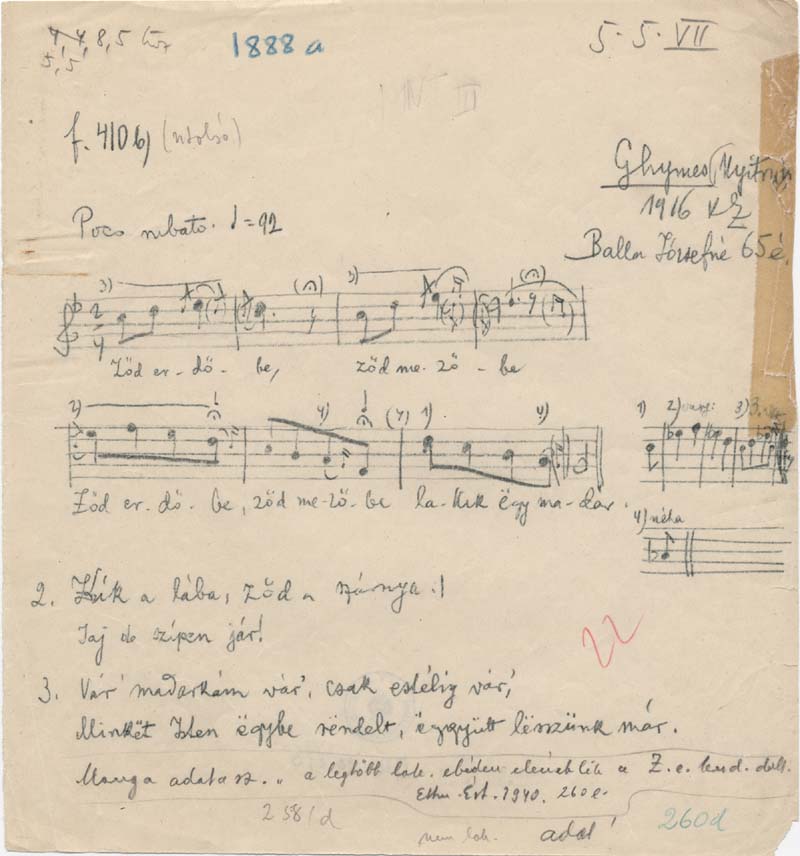 4, 4, 8, 5
5, 5
1888 a
5. 5. VII
f. 410 b) (utolsó)
Ghymes (Nyitra
1916 KZ
Balla Józsefné 65 é.
Poco rubato. ♩=92
3) 3)
2
4
Ződ er-dő-be, ződ me-ző-be
2) 4) (4) 1) 4)
1) 2) vagy: 3) 3.
Ződ er-dő-be, ződ me-ző-be la-kik ëgy ma-dár.
4) néha
2. Kík a lába, ződ a szárnya!
Jaj de szípen jár!
22
3. Várˊ madarkám várˊ, csak estélig várˊ,
Minkët Isten ëgybe rëndelt, ëggyütt lëszünk már.
Manga adata sz. „ a legtöbb lak. ebéden éneklik a Z. e. kezd. dalt.
Ethn. Ért. 1940. 260 l.
258/d
nem lak. adat 260d